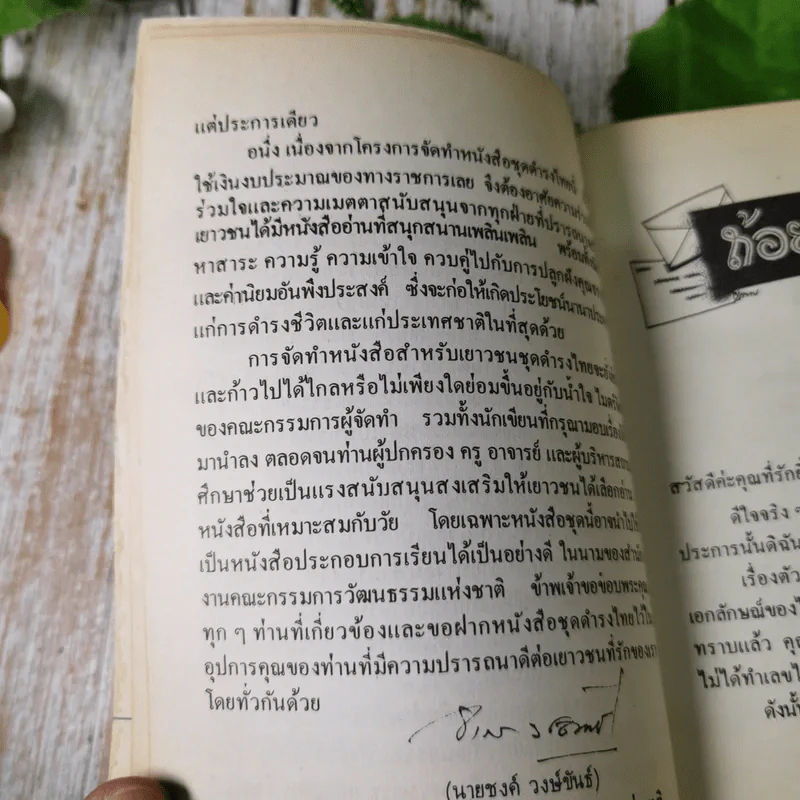 แต่ประการเดียว
อนึ่ง เนื่องจากโครงการจัดทำหนังสือชุดดำรงไทยมิ
ใช้เงินงบประมาณของทางราชการเลย จึงต้องอาศัยความ
ร่วมใจและความเมตตาสนับสนุนจากทุกฝ่ายที่ปรารถนา
เยาวชนได้มีหนังสืออ่านที่สนุกสนานเพลินเพลิน พร้อม
หาสาระ ความรู้ ความเข้าใจ ควบคู่ไปกับการปลูกฝังคุณ
และค่านิยมอันพึงประสงค์ ซึ่งจะก่อให้เกิดประโยชน์นานา
แก่การดำรงชีวิตและแก่ประเทศชาติในที่สุดด้วย
การจัดทำหนังสือสำหรับเยาวชนชุดดำรงไทยจะ
และก้าวไปได้ไกลหรือไม่เพียงใดย่อมขึ้นอยู่กับน้ำใจ ไมตรี
ของคณะกรรมการผู้จัดทำ รวมทั้งนักเขียนที่กรุณามอบเรื่อง
มานำลง ตลอดจนท่านผู้ปกครอง ครู อาจารย์ และผู้บริหารสถาน
ศึกษาช่วยเป็นแรงสนับสนุนส่งเสริมให้เยาวชนได้เลือกอ่าน
หนังสือที่เหมาะสมกับวัย โดยเฉพาะหนังสือชุดนี้อาจนำไปใช้
เป็นหนังสือประกอบการเรียนได้เป็นอย่างดี ในนามของสำนัก
งานคณะกรรมการวัฒนธรรมแห่งชาติ ข้าพเจ้าขอขอบพระคุณ
ทุก ๆ ท่านที่เกี่ยวข้องและขอฝากหนังสือชุดดำรงไทยไว้ใน
อุปการคุณของท่านที่มีความปรารถนาดีต่อเยาวชนที่รักของเรา
โดยทั่วกันด้วย
(นายชงค์ วงษ์ขันธ์)
ถ้อย
สวัสดีค่ะคุณที่รักยิ่
ดีใจจริง ๆ
ประการนั้นดิฉัน
เรื่องตัว
เอกลักษณ์ของไ
ทราบแล้ว คุ
ไม่ได้ทำเลขไ
ดังนั้